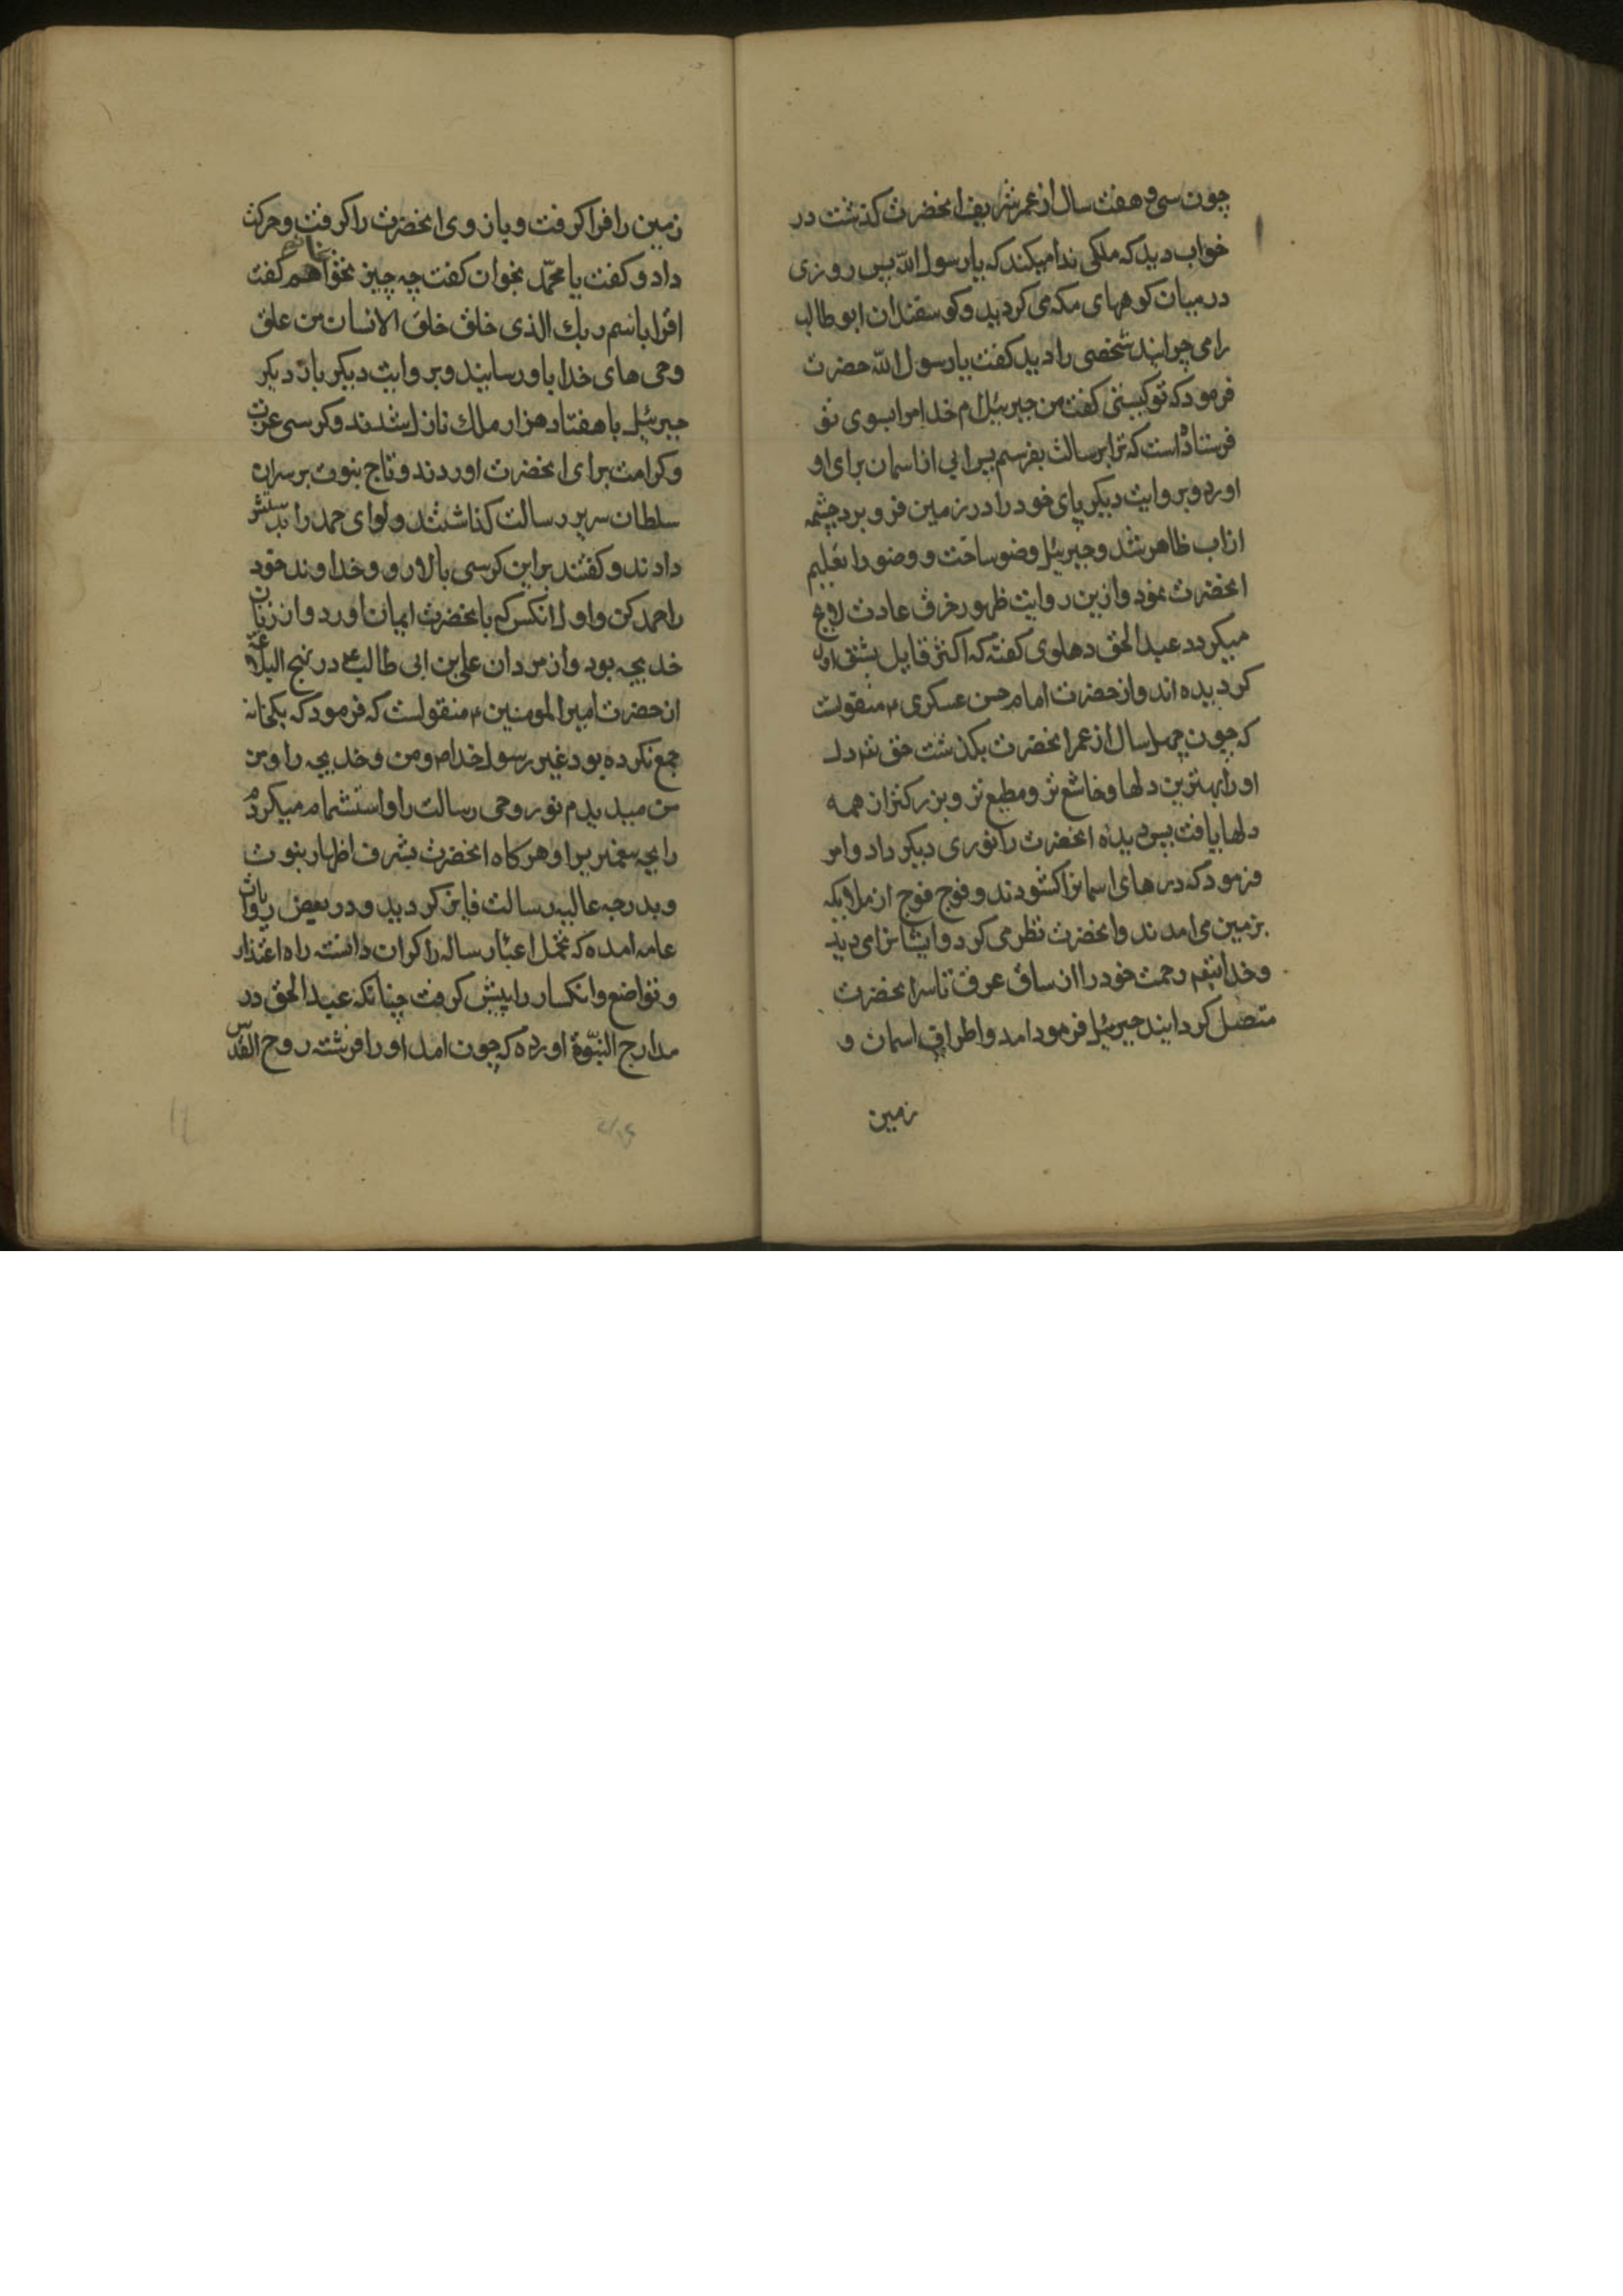 چون سی و هفت سال از عمر شریف انحضرت کذشت در
خواب دید که ملکی ندا میکند که یا رسول الله پس روزی
در میان کوههای مکه می کردید و کوسفندان ابو طالب
را می چرانید شخصی را دید کفت یا رسول الله حضرت
فرمود که تو کیستی کفت من جبرئیل ام خدا مرا بسوی تو
فرستاده است که ترا برسالت بفرستم پس ابی از اسمان برای او
اورد و بروایت دیکر پای خود را در زمین فرو برد چشمه
از اب ظاهر شد و جبرئیل وضو ساخت و وضو را تعلیم
انحضرت نمود و ازین روایت ظهور خرق عادت لایح
میکردد عبد الحق دهلوی کفته که اکثر قایل بشق اول
کردیده اند و از حضرت امام حسن عسکری ع منقولست
که چون چهل سال از عمر انحضرت بکذشت حق تعم دل
او را بهترین دلها و خاشع تر و مطیع تر و بزرکتر از همه
دلها یافت پس دیده انحضرت را نوری دیکر داد و امر
فرمود که درهای اسمانرا کشودند و فوج فوج از ملایکه
بزمین می امدند و انحضرت نظر می کرد و ایشانرا می دید
و خدایتعم رحمت خود را از ساق عرق تا سر انحضرت
متصل کردایند جبرئیل فرمود امد و اطراف اسمان و
زمین
زمین را فرا کرفت و بازوی انحضرت را کرفت و حرکت
داد و کفت یا محمد بخوان کفت چه چیز بخوانم کفت
اقرا باسم ربك الذی خلق خلق الانسان من علق
وحی های خدا باو رسانید و بروایت دیکر بار دیکر
جبرئیل با هفتاد هزار ملك نازل شدند و کرسی عزت
و کرامت برای انحضرت اوردند و تاج نبوت بر سر ان
سلطان سریر رسالت کذاشتند و لوای حمد را بدستش
دادند و کفتند براین کرسی بالا رو و خداوند خود
را حمد کن و اول انکس که بانحضرت ایمان اورد و از زنان
خدیجه بود و از مردان علی بن ابی طالب ع در نهج البلاغه
از حضرت امیر المومنین ع منقولست که فرمود که یکخانه
جمع نکرده بود غیر رسول خدا م و من و خدیجه را و من
من میدیدم نور وحی رسالت را و استشمام میکردم
رایحه پیغمبریرا و هرکاه انحضرت بشرف اظهار نبوت
و بدرجه عالیه رسالت فایز کردید و در بعض روایات
عامه امده که تحمل اعباء رساله را کران دانسته راه اعتذار
و تواضع و انکسار را پیش کرفت چنانکه عبد الحق در
مدارج النبوة اورده که چون امد او را فرشته روح القدس